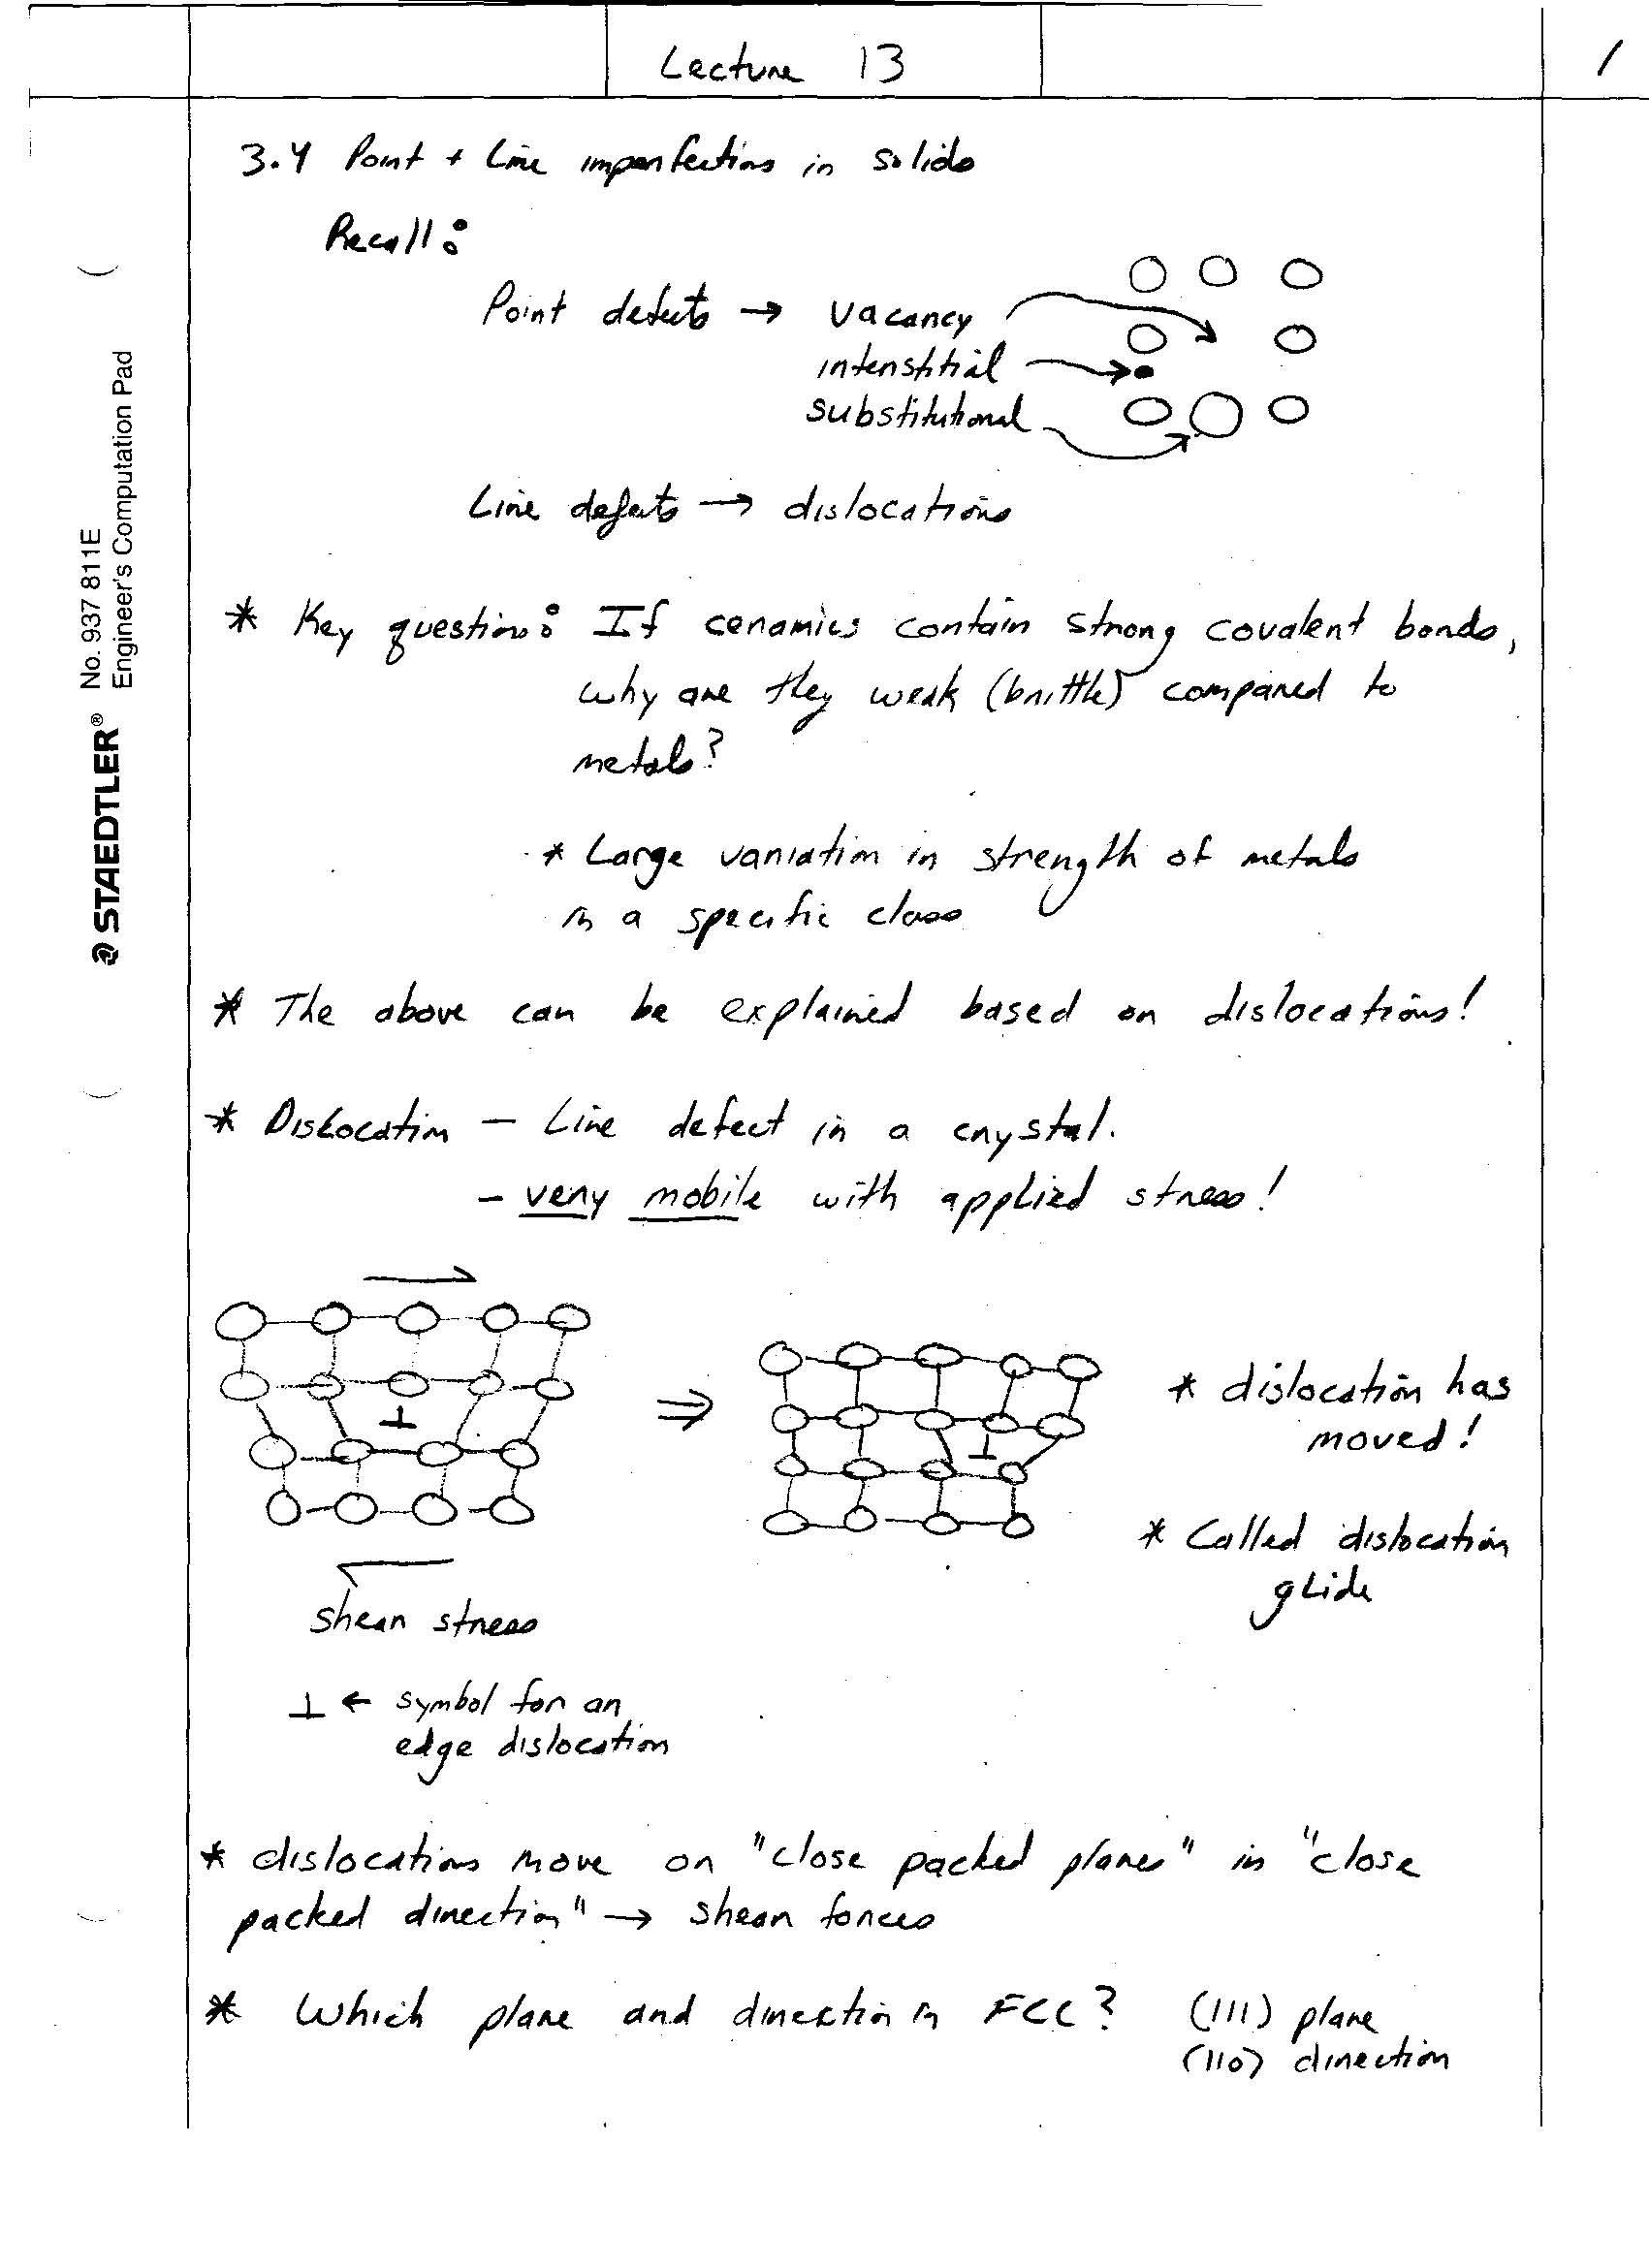 Lecture 13
1
3.4 Point + Line imperfections in solids
Recall:
Point defects → vacancy
interstitial
substitutional
Line defects → dislocations
* Key question: If ceramics contain strong covalent bonds,
why are they weak (brittle) compared to
metals?
* Large variation in strength of metals
in a specific class
* The above can be explained based on dislocations!
* Dislocation - Line defect in a crystal.
- very mobile with applied stress!
⊥
⇒
⊥
* dislocation has
moved!
* Called dislocation
glide
shear stress
⊥ ← symbol for an
edge dislocation
* dislocations move on "close packed planes" in "close
packed direction" → shear forces
* Which plane and direction in FCC? (111) plane
(110) direction
No. 937 811E
Engineer's Computation Pad
STAEDTLER®